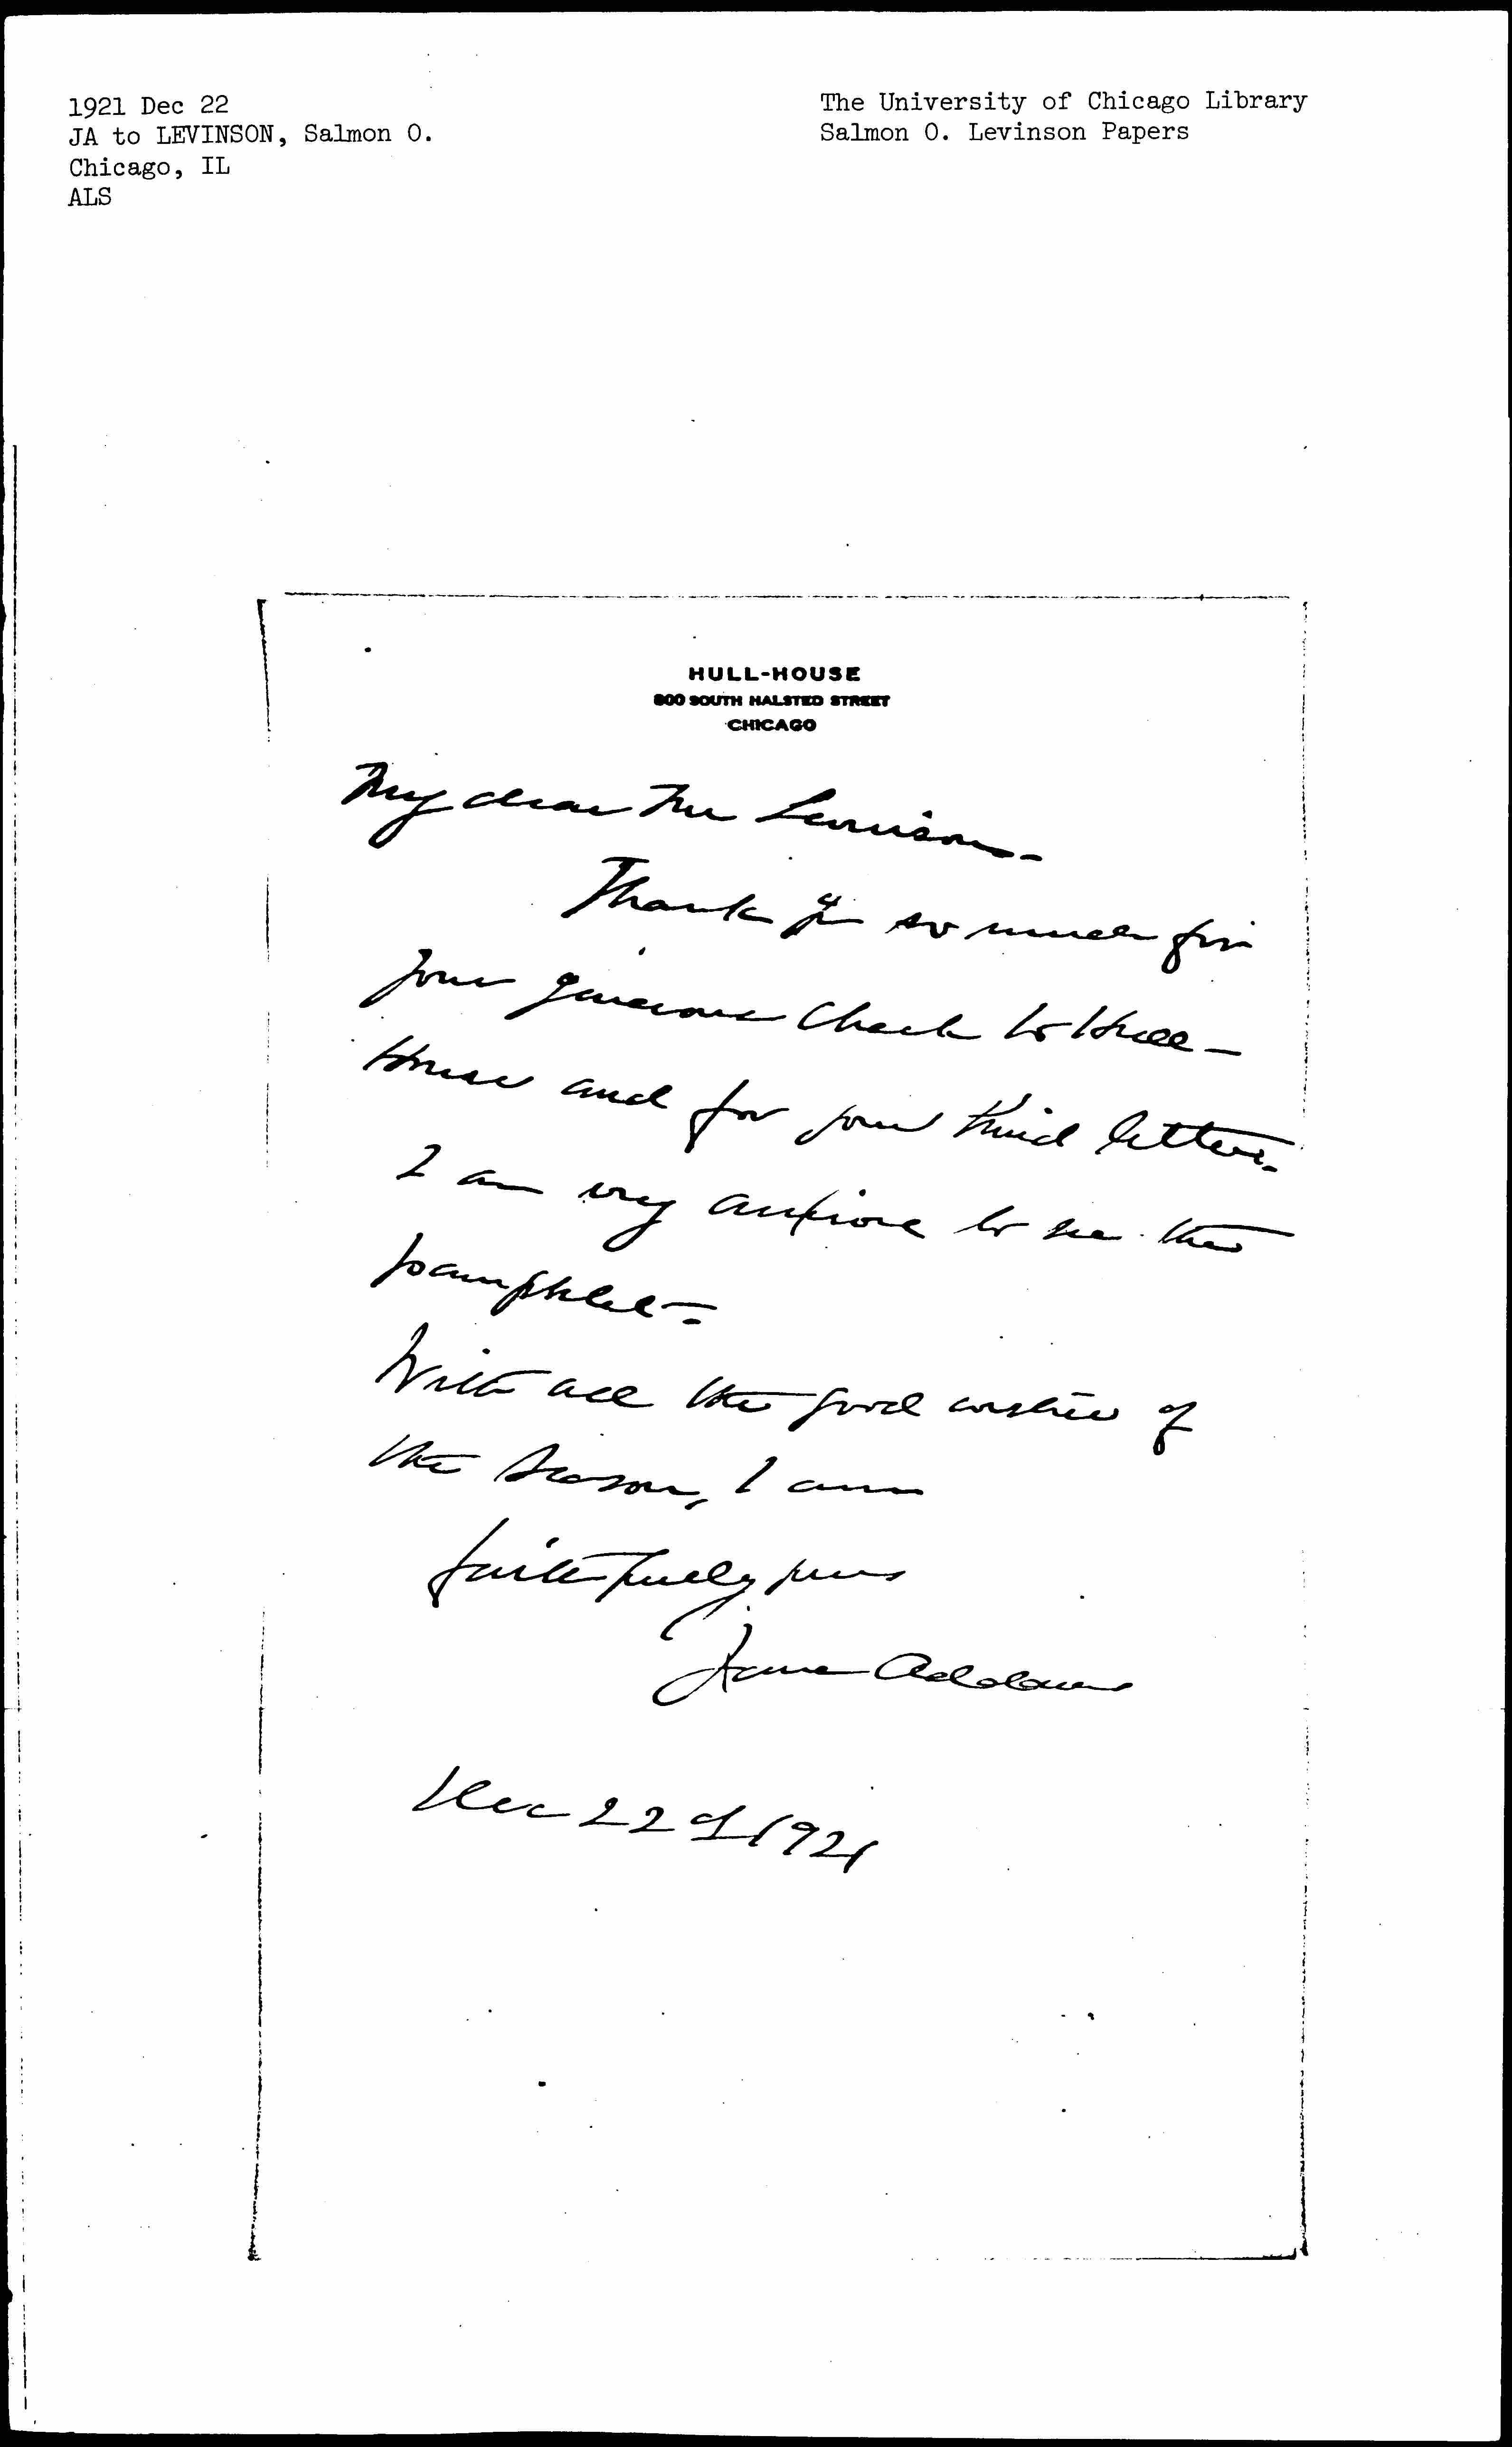 1921 Dec 22
JA to LEVINSON, Salmon O.
Chicago, IL
ALS
The University of Chicago Library
Salmon O. Levinson Papers
HULL-HOUSE
800 SOUTH HALSTED STREET
CHICAGO
My dear Mr Levinson—
Thank you so much for
your generous check to Hull-
House and for your kind letter.
I am very anxious to see the
pamphlet—
With all the good wishes of
the season, I am
faithfully yours
Jane Addams
Dec 22d 1921